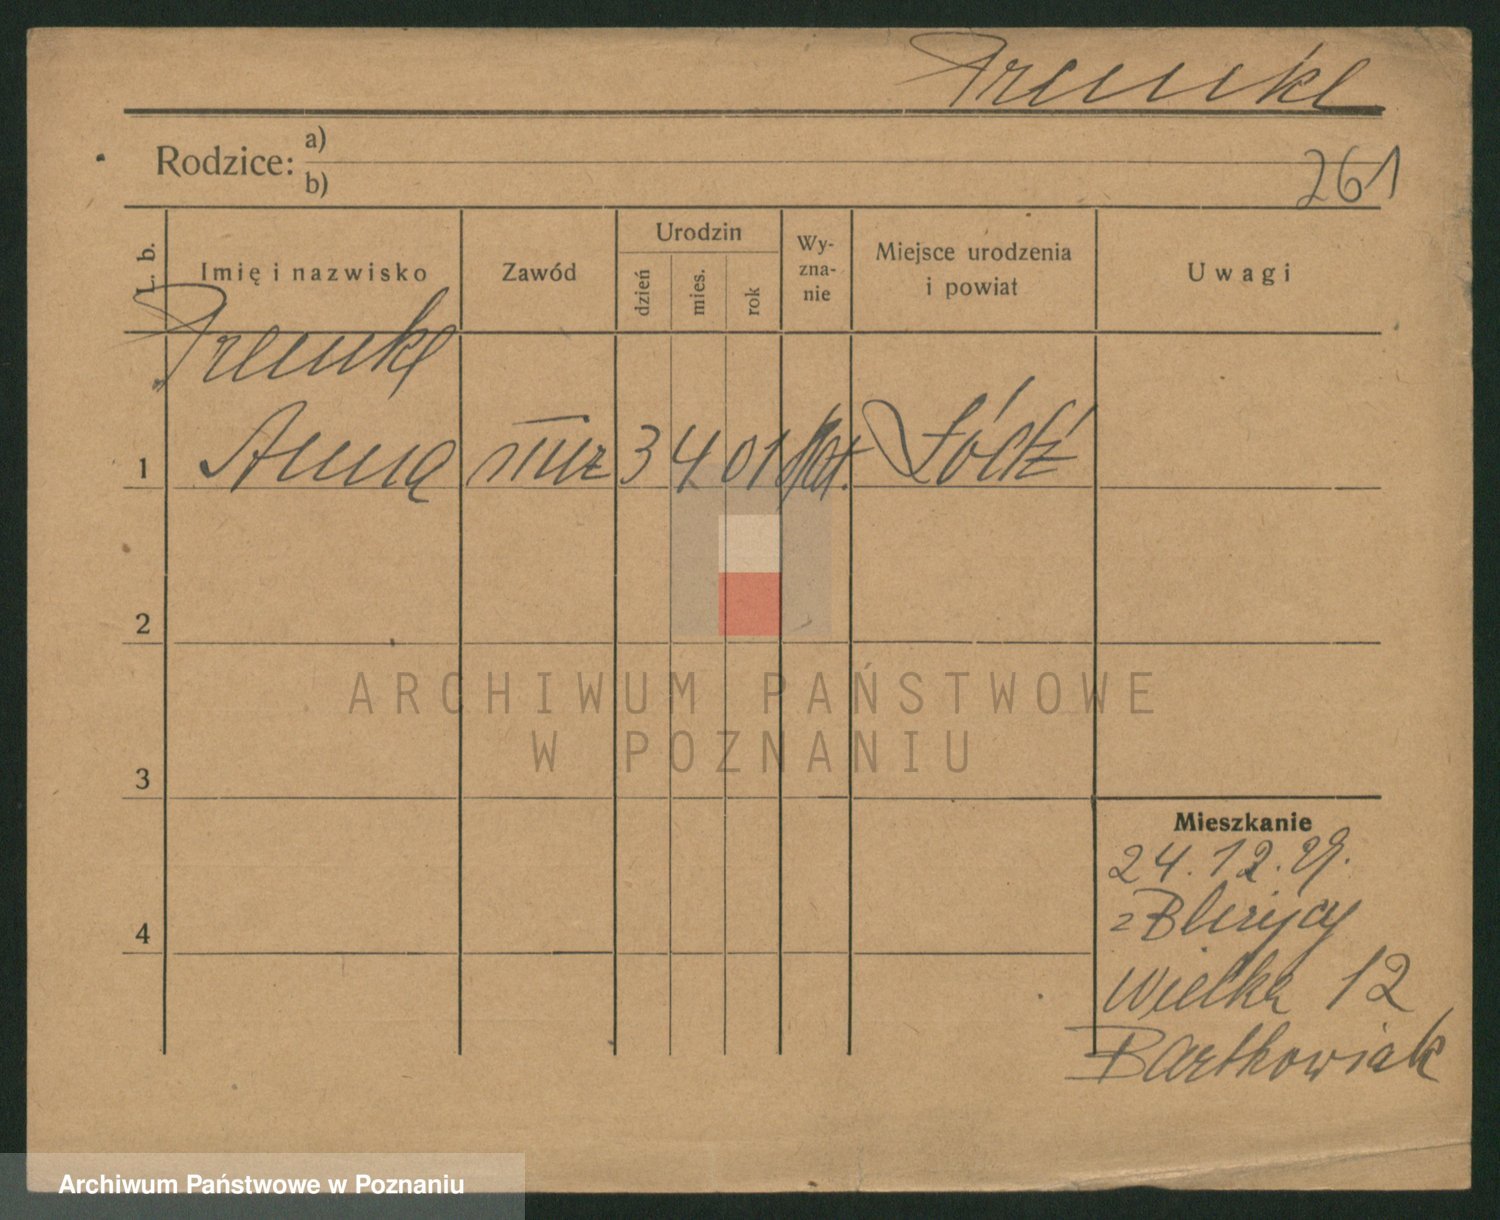 Frenke
Rodzice: a)
b)
261
L. b.
Imię i nazwisko
Zawód
Urodzin
dzień
mies.
rok
Wy-
zna-
nie
Miejsce urodzenia
i powiat
Uwagi
Frenke
1 Anna 3 4 01
2
3
4
Mieszkanie
24.12.29.
z
Wielka 12
Bartkowiak
ARCHIWUM PAŃSTWOWE
W POZNANIU
Archiwum Państwowe w Poznaniu